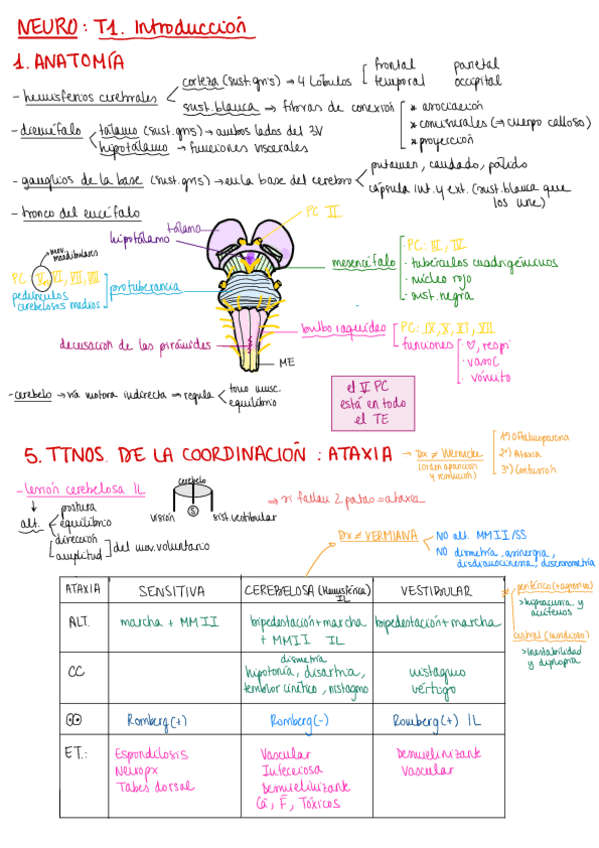 NEURO: T1. Introducción
1. ANATOMÍA
- hemisferios cerebrales
corteza (sust. gris) → 4 Lóbulos
frontal parietal
temporal occipital
sust. blanca → fibras de conexión
* asociación
* comisurales (→ cuerpo calloso)
* proyección
- diencéfalo
tálamo (sust. gris) → ambos lados del 3V
hipotálamo → funciones viscerales
- ganglios de la base (sust. gris) → en la base del cerebro
putamen, caudado, pálido
cápsula int. y ext. (sust. blanca que
los une)
- tronco del encéfalo
tálamo
hipotálamo
PC II
mov. mandibulares
PC V, VI, VII, VIII
pedúnculos
cerebelosos medios
protuberancia
mesencéfalo
· PC: III, IV
· tubérculos cuadrigéminos
· núcleo rojo
· sust. negra
bulbo raquídeo
PC: IX, X, XI, XII
funciones
· ♡, respi
· vasoC
· vómito
decusación de las pirámides
ME
- cerebelo → vía motora indirecta → regula
tono musc.
equilibrio
el V PC
está en todo
el TE
5. TTNOS. DE LA COORDINACIÓN: ATAXIA
→ Dx ≠ Wernicke
(orden aparición
y resolución)
1º) Oftalmoparesia
2º) Ataxia
3º) Confusión
- lesión cerebelosa IL
alt.
postura
equilibrio
dirección
amplitud
del mov. voluntario
cerebelo
visión
S
sist. vestibular
→ si fallan 2 patas = ataxia
Dx ≠ VERMIANA
NO alt. MMII/SS
NO dismetría, asinergia,
disdiadococinesia, discronometría
ATAXIA SENSITIVA CEREBELOSA (Hemisférica) IL VESTIBULAR
ALT. marcha + MMII bipedestación + marcha + MMII IL bipedestación + marcha
CC dismetría hipotonía, disartria, temblor cinético, nistagmo nistagmo vértigo
Romberg (+) Romberg (-) Romberg (+) IL
ET.: Espondilosis Vascular Demielinizante
Neuropx Infecciosa Vascular
Tabes dorsal Demielinizante
Ca, F, Tóxicos
periférico (+ agresivo)
> hipoacusia y
acúfenos
central (insidioso)
> inestabilidad
y diplopia